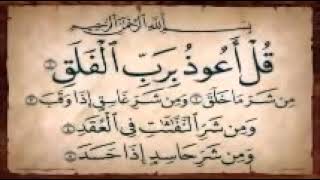 بِسْمِ اللَّهِ الرَّحْمَٰنِ الرَّحِيمِ
قُلْ أَعُوذُ بِرَبِّ الْفَلَقِ
مِن شَرِّ مَا خَلَقَ وَمِن شَرِّ غَاسِقٍ إِذَا وَقَبَ
وَمِن شَرِّ النَّفَّاثَاتِ فِي الْعُقَدِ
وَمِن شَرِّ حَاسِدٍ إِذَا حَسَدَ